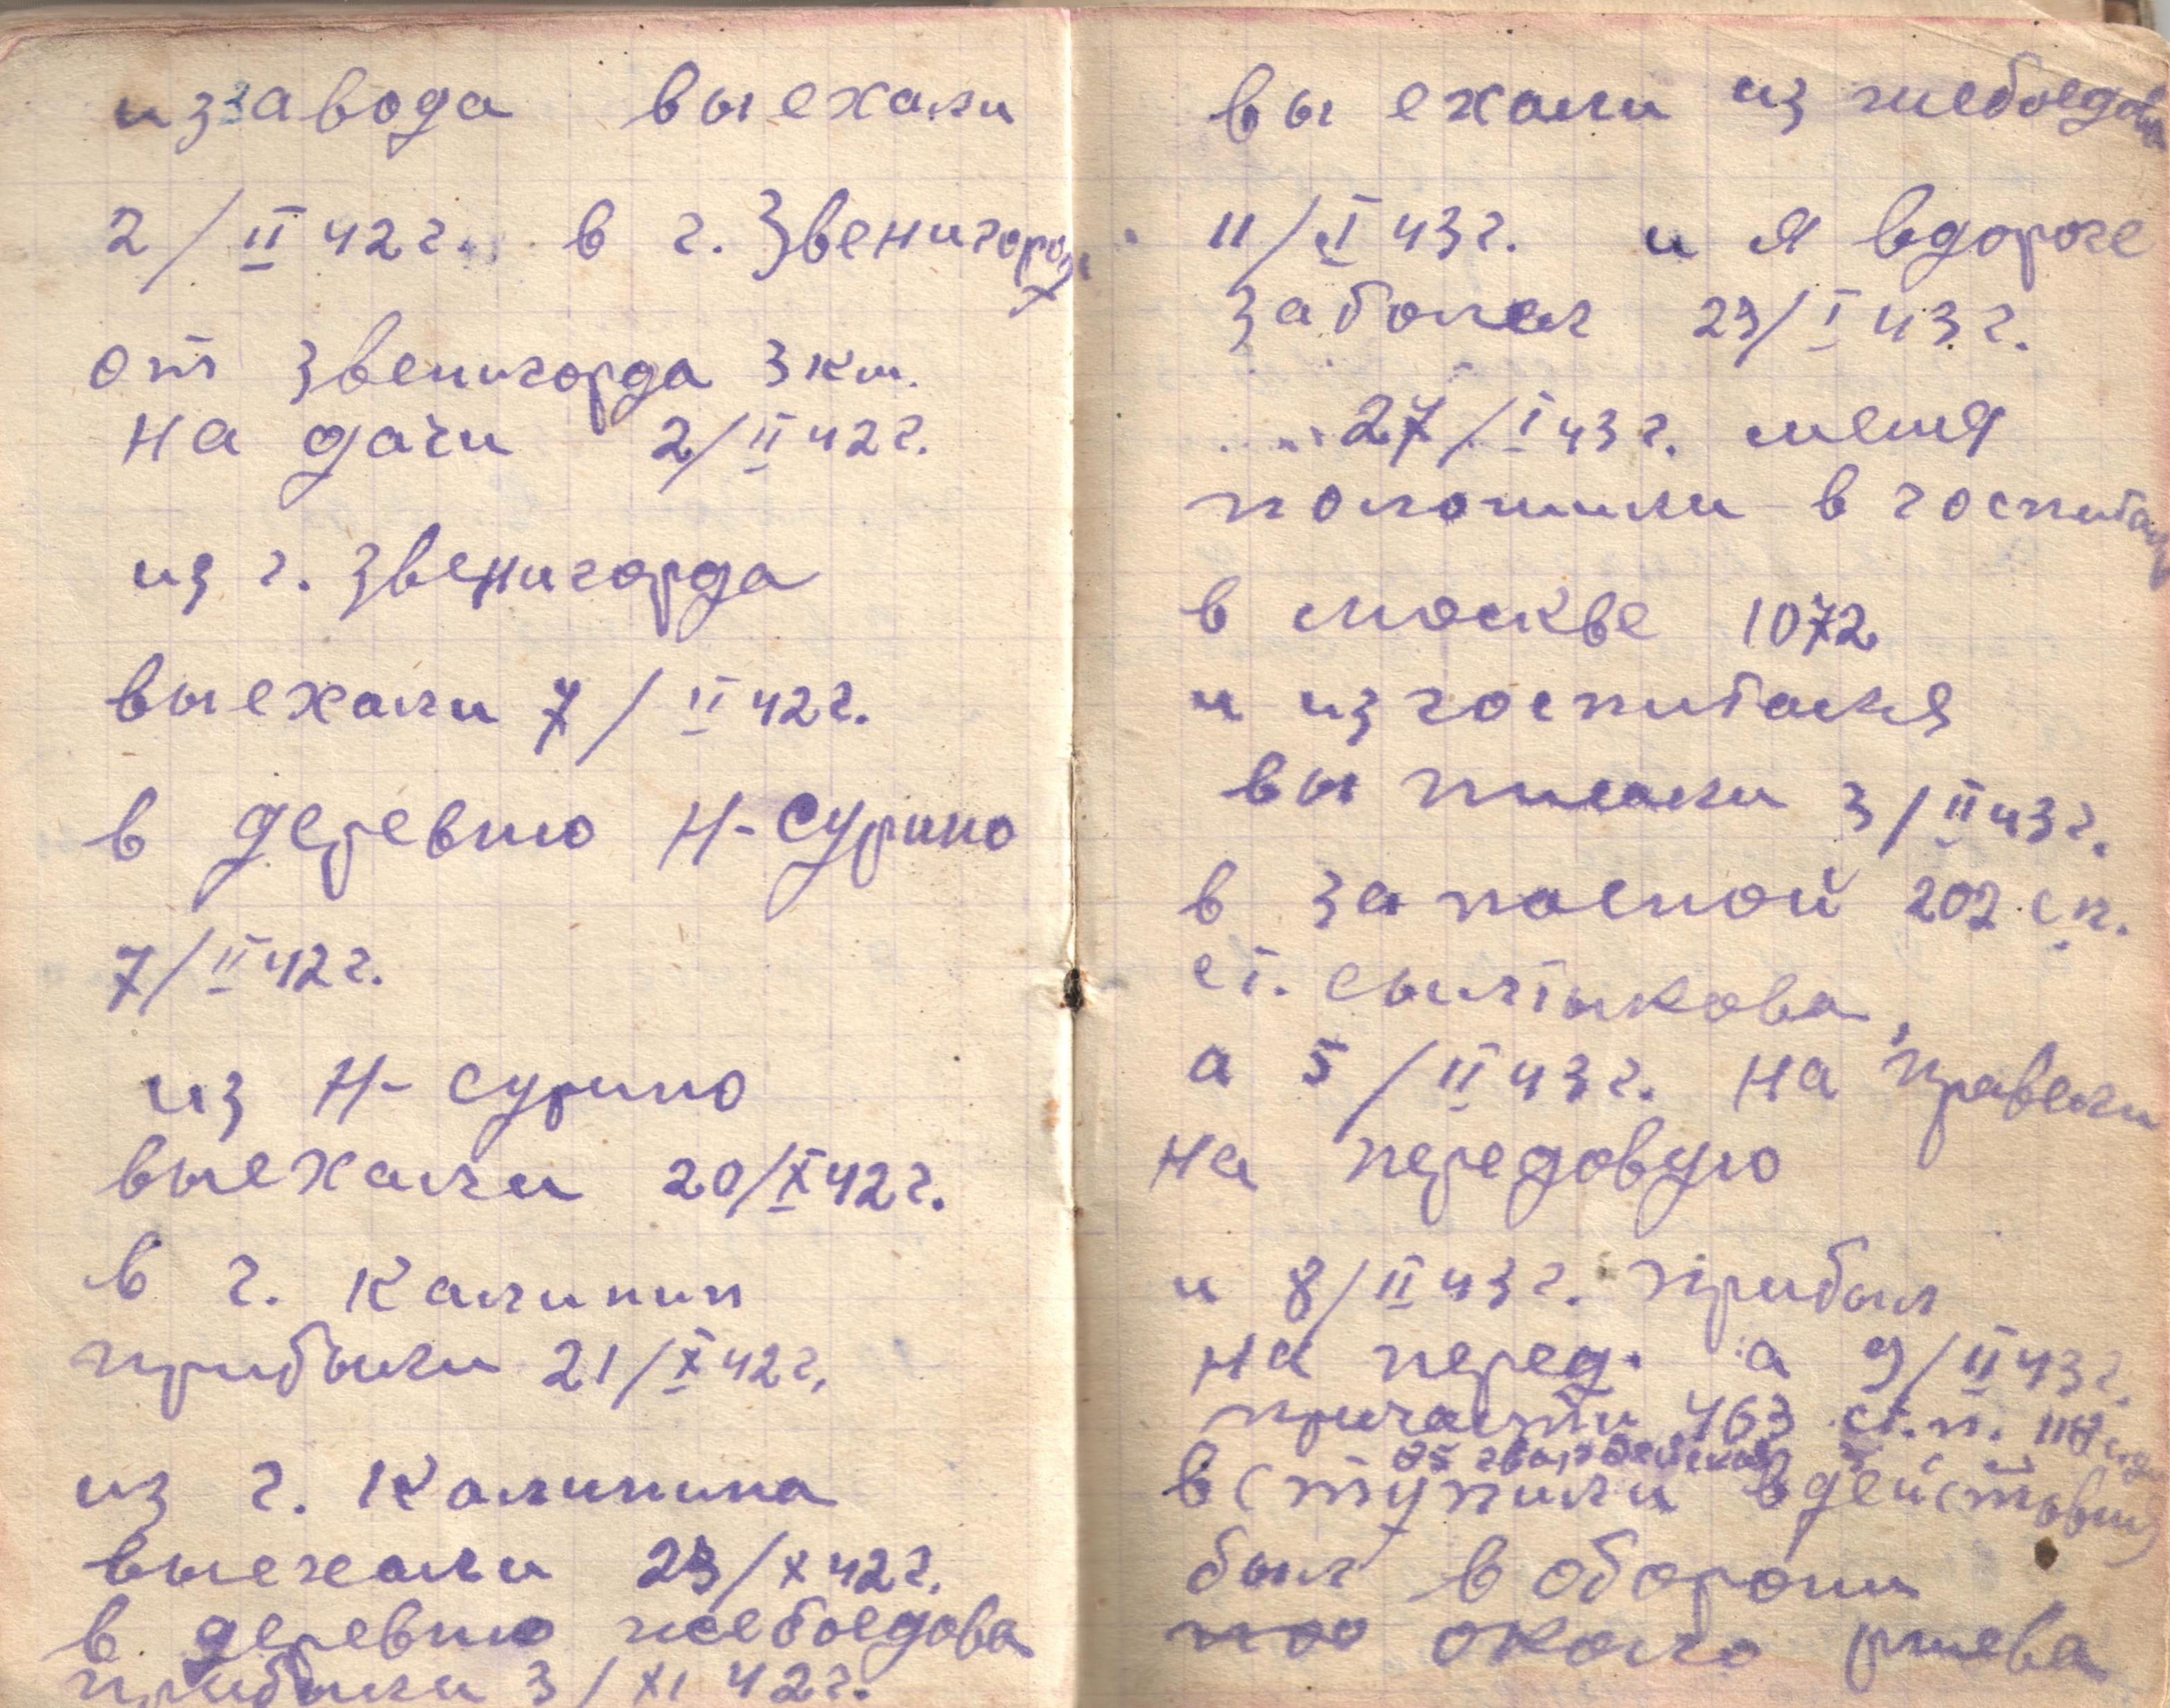 из завода выехали
2/II 42 г. в г. Звенигород
от звенигорда 3 км.
на дачи 2/II 42 г.
из г. Звенигорда
выехали 7/II 42 г.
в деревню Н-Сурино
7/II 42 г.
из Н-сурино
выехали 20/X 42 г.
в г. Калинин
прибыли 21/X 42 г.
из г. Калинина
выехали 23/X 42 г.
в деревню жебоедова
прибыли 3/XI 42 г.
вы ехали из жебоедова
11/I 43 г. и я вдороге
заболел 23/I 43 г.
27/I 43 г. меня
положили в госпиталь
в москве 1072
и из госпиталя
вы писали 3/II 43 г.
в запасной 202 с.п.
ст. сылтыкова,
а 5/II 43 г. на правели
на передовую
и 8/II 43 г. прибыл
на перед. а 9/II 43 г.
причасти 463 ст.п.
гвардейская
вступили вдействи
был в оборони
около ржева